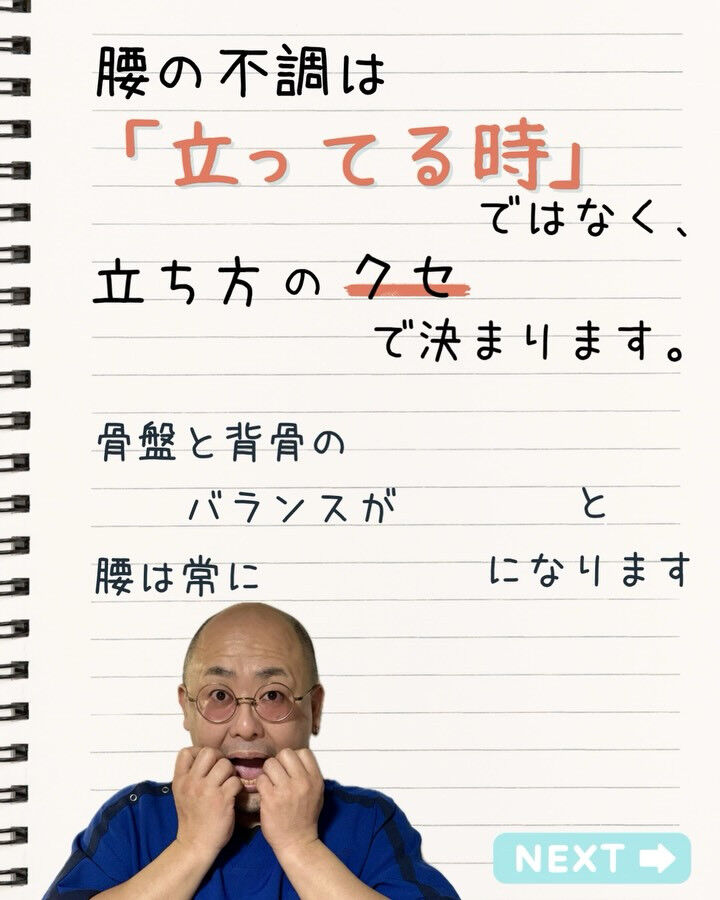 腰の不調は
「立ってる時」
ではなく、
立ち方のクセ
で決まります。
骨盤と背骨の
バランスが と
腰は常に になります
NEXT